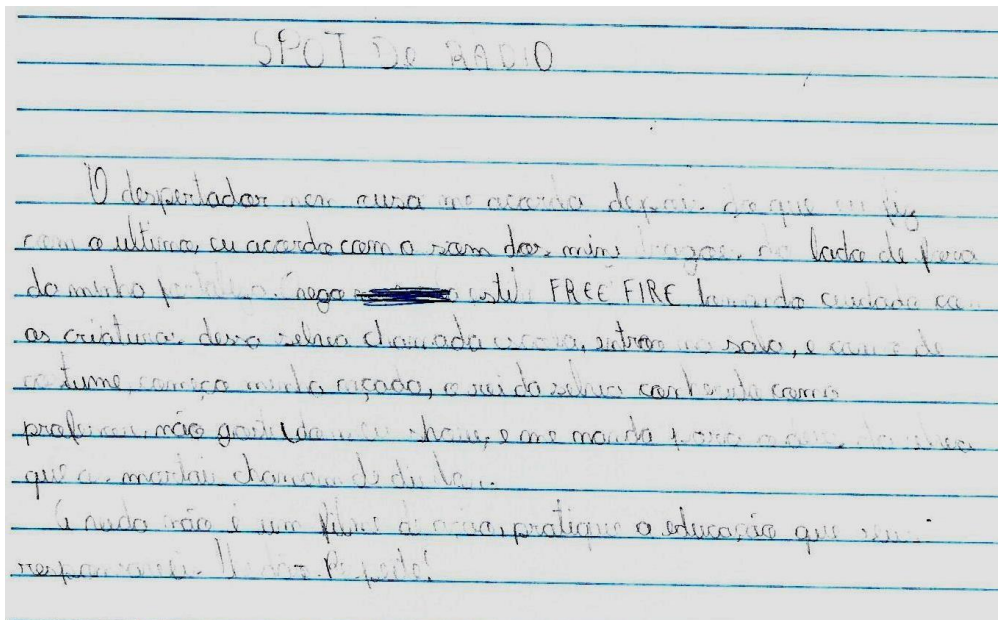 SPOT De RADIO
O despertador nem ousa me acorda depois do que eu fiz
com o ultimo, eu acordo com o som dos mini dragões do lado de fora
do minha chego estilo FREE FIRE tomando cuidado com
as criaturas dessa selva chamada escola, entro na sala, e como de
costume, começo minha caçada, o rei da selva conhecido como
professor, não gosta do meu show, e me manda para o deus da selva
que os mortais chamam de diretor.
A vida não é um filme de ação, pratique a educação que seus
responsáveis